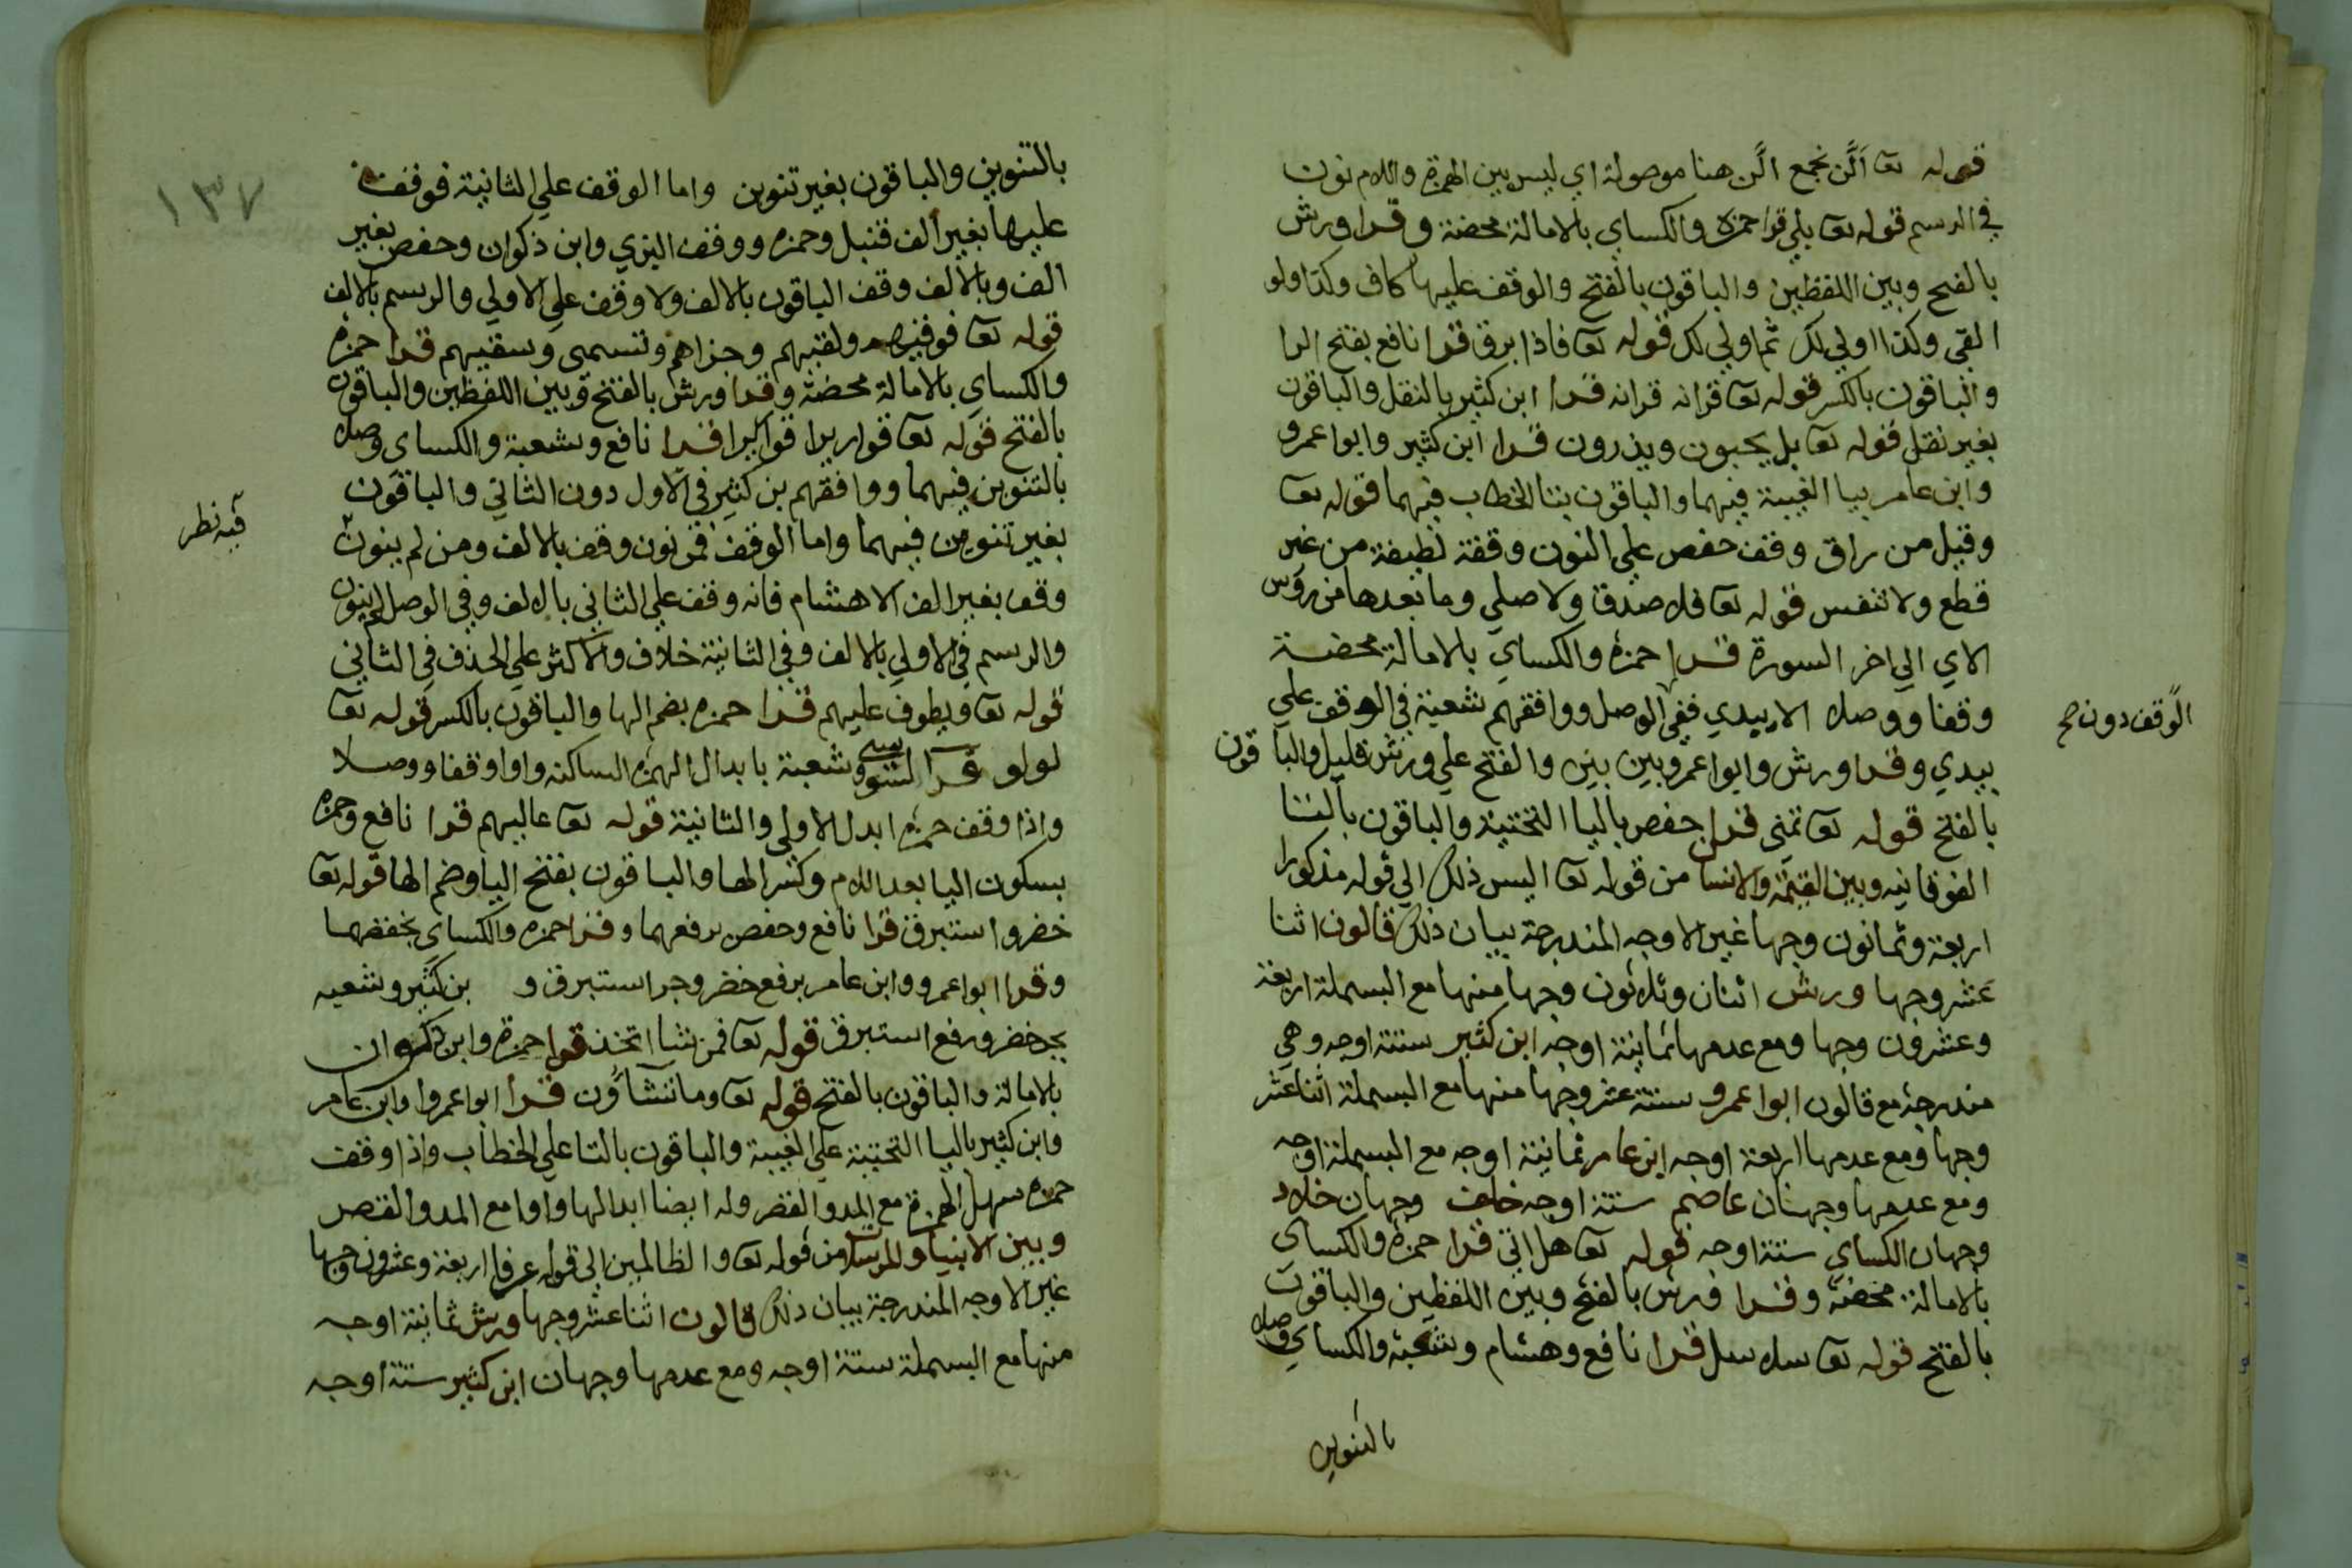 قوله تعا الّن نجمع الّن هنا موصولة اي ليس بين الهمزة واللام نون
في الرسم قوله تعا بلي قرا حمزة والكساي بالامالة محضة وقرا ورش
بالفتح وبين اللفظين والباقون بالفتح والوقف عليها كاف وكذا ولو
القي وكذا اولي لك ثم اولي لك قوله تعا فاذا برق قرا نافع بفتح الرا
والباقون بالكسر قوله تعا قرانه قرانه قرا ابن كثير بالنقل والباقون
بغير نقل قوله تعا بل يحبون ويذرون قرا ابن كثير وابوا عمرو
وابن عامر بيا الغيبة فيهما والباقون بتا الخطاب فيهما قوله تعا
وقيل من راق وقف حفص علي النون وقفة لطيفة من غير
قطع ولا تنفس قوله تعا فلا صدق ولا صلي وما بعدها من روس
الاي الي اخر السورة قرا حمزة والكساي بالامالة محضة
وقفا ووصلا الا بيدي ففي الوصل ووافقهم شعبة في الوقف علي
الوقف دون صح
بيدي وقرا ورش وابوا عمرو بين بين والفتح علي ورش قليل والباقون
بالفتح قوله تعا تمني قرا حفص باليا التحتية والباقون بالتا
الفوقانيه وبين القيمة والانسان من قوله تعا اليس ذلك الي قوله مذكورا
اربعة وثمانون وجها غير الاوجه المندرجة بيان ذلك قالون اثنا
عشر وجها ورش اثنان وثلاثون وجها منها مع البسملة اربعة
وعشرون وجها ومع عدمها ثمانية اوجه ابن كثير ستة اوجه وهي
مندرجة مع قالون ابوا عمرو ستة عشر وجها منها مع البسملة اثنا عشر
وجها ومع عدمها اربعة اوجه ابن عامر ثمانية اوجه مع البسملة اوجه
ومع عدمها وجهان عاصم ستة اوجه خلف وجهان خلاد
وجهان الكساي ستة اوجه قوله تعا هل اتي قرا حمزة والكساي
بالامالة محضة وقرا ورش بالفتح وبين اللفظين والباقون
بالفتح قوله تعا سلاسل قرا نافع وهشام وشعبة والكساي وصلا
بالتنوين
١٣٧
بالتنوين والباقون بغير تنوين واما الوقف علي الثانية فوقف
عليها بغير الف قنبل وحمزه ووقف البزي وابن ذكوان وحفص بغير
الف وبالالف وقف الباقون بالالف ولا وقف علي الاولي والرسم بالالف
قوله تعا فوقيهم ولقيهم وجزاهم وتسمى وسقيهم قرا حمزه
والكساي بالامالة محضة وقرا ورش بالفتح وبين اللفظين والباقون
بالفتح قوله تعا قواريرا قواريرا قرا نافع وشعبة والكساي وصلا
بالتنوين فيهما ووافقهم بن كثير في الاول دون الثاني والباقون
بغير تنوين فيهما واما الوقف فمن نون وقف بالالف ومن لم ينون
فيه نظر
وقف بغير الف الا هشام فانه وقف علي الثاني بالالف وفي الوصل لم ينون
والرسم في الاولي بالالف وفي الثانية خلاف والاكثر علي الحذف في الثاني
قوله تعا ويطوف عليهم قرا حمزه بضم الها والباقون بالكسر قوله تعا
لولو قرا السوسي وشعبة بابدال الهمزه الساكنه واوا وقفا ووصلا
واذا وقف حمزه ابدل الاولي والثانية قوله تعا عاليهم قرا نافع وحمزه
بسكون اليا بعد اللام وكسر الها والباقون بفتح اليا وضم الها قوله تعا
خضر واستبرق قرا نافع وحفص برفعهما وقرا حمزه والكساي بخفضهما
وقرا ابوا عمرو وابن عامر برفع خضر وجر استبرق و بن كثير وشعبه
بجر خضر ورفع استبرق قوله تعا فمن شا اتخذ قرا حمزة وابن ذكوان
بالامالة والباقون بالفتح قوله تعا وما تشاؤن قرا ابوا عمروا وابن عامر
وابن كثير باليا التحتية علي الغيبة والباقون بالتا علي الخطاب واذا وقف
حمزه سهل الهمزة مع المد والقصر وله ايضا ابدالها واوا مع المد والقصر
وبين الانسان والمرسلات من قوله تعا والظالمين الي قوله عرفا اربعة وعشرون وجها
غير الاوجه المندرجة بيان ذلك قالون اثنا عشر وجها ورش ثمانية اوجه
منها مع البسملة ستة اوجه ومع عدمها وجهان ابن كثير ستة اوجه